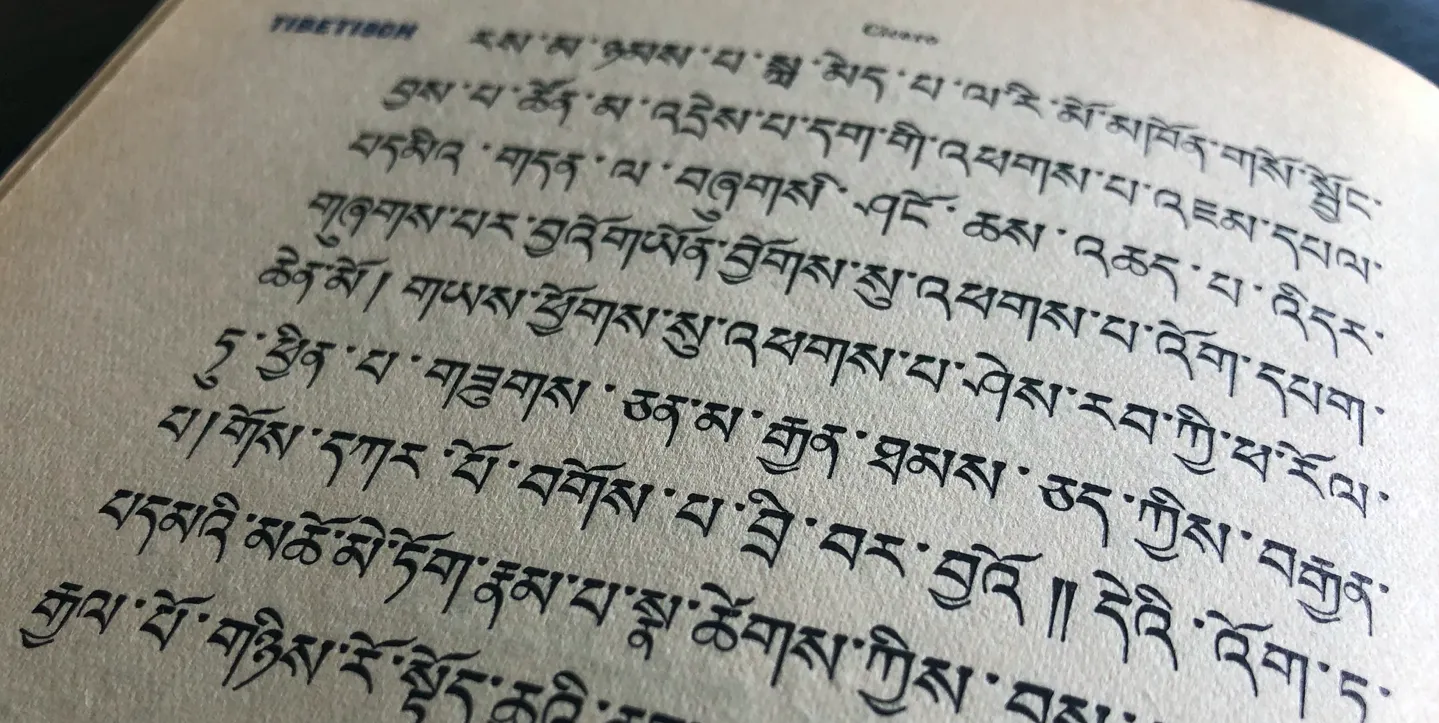 TIBETISCH
Cicero
རས་མ་ཉམས་པ་སྨྲ་མེད་པ་ལ་རི་མོ་མཁོན་གསོ་སྦྱོང་
བྱས་པ་ཚོན་མ་འདྲེས་པ་དག་གི་འཕགས་པ་འཇམ་དཔལ་
པདམིའ་གདན་ལ་བཞུགས་ཤིང་ཆས་འཆད་པ་འིདར་
གཞུགས་པར་བྱའོ་གཡོན་ཕྱོགས་སུ་འཕགས་པ་འོག་དཔག་
ཆེན་མོ། གཡས་ཕྱོགས་སུ་འཕགས་པ་ཤེས་རབ་ཀྱི་ཕ་རོལ་
ཏུ་ཕྱིན་པ་གཟུགས་ཅན་མ་རྒྱན་ཐམས་ཅད་ཀྱིས་བརྒྱན་
པ། གོས་དཀར་པོ་བགོས་པ་བྲི་བར་བྱའོ༎ དེའི་འོག་ཏ་
པདམའི་མཚོ་མེ་ཏོག་རྣམ་པ་སྣ་ཚོགས་ཀྱིས་
རྒྱལ་པོ་གཉིས་རོ་སྟོད་ཆའི་